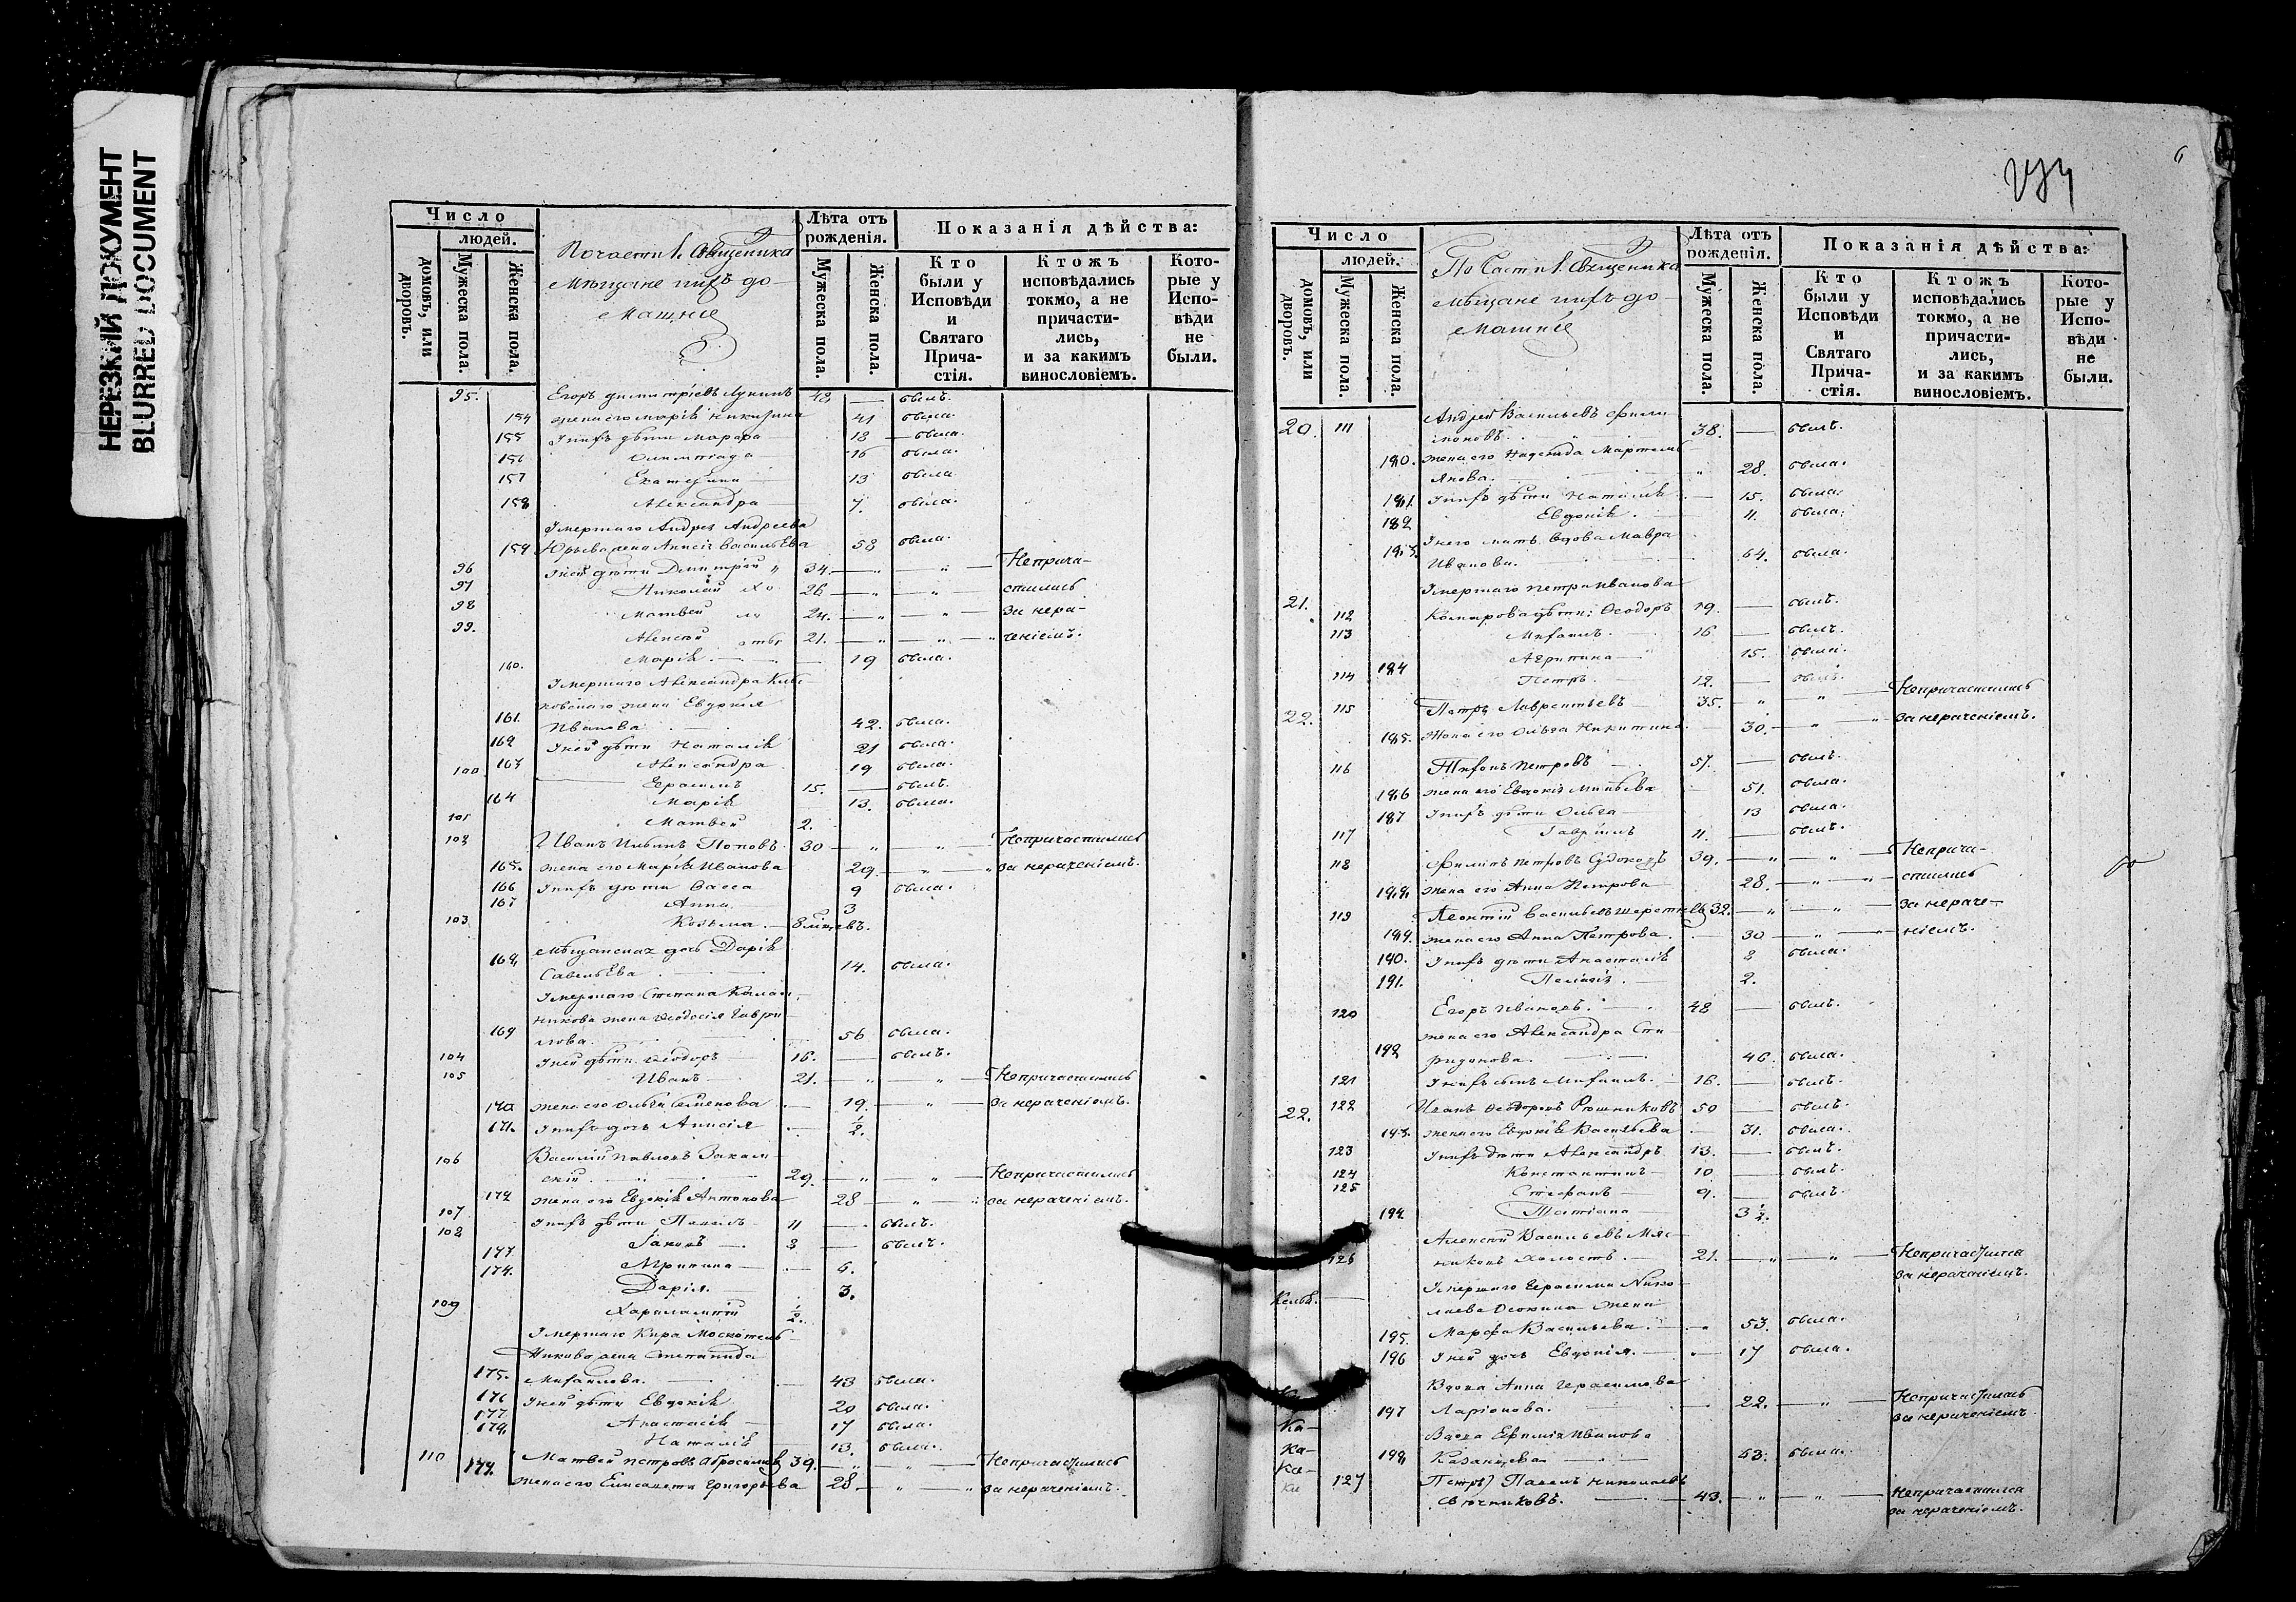 НЕРЕЗКИЙ ДОКУМЕНТ
BLURRED DOCUMENT
Число
людей.
домовъ, или дворовъ.
Мужеска пола.
Женска пола.
Мѣщане и ихъ до-
машніе
Лѣта отъ рожденія.
Мужеска пола.
Женска пола.
Показанія дѣйства:
Кто были у Исповѣди и Святаго Прича-стія.
Ктожъ исповѣдались токмо, а не причасти-лись, и за какимъ винословіемъ.
Кото-рые у Испо-вѣди не были.
95. Егоръ Димитріевъ 42 — былъ.
154 жена его Марія Никитина 41 была.
155 Ихъ дѣти Марѳа 18 — была.
156 Олимпіада 16 была.
157 Екатерина 13 была
158 Александра 7. была.
Умершаго Андрея Андреева
159 Юрьева жена Анисія Васильева 58 была.
96 Ея дѣти Димитрій 34. — Неприча-
97 Николай 26 — стились
98 Матвей 24. — за нера-
99. Алексѣй 21. — ченіемъ.
160. Марія 19 была.
Умершаго Александра
жена Евдокія
161. Иванова 42. была.
162 Ея дѣти Наталія 21 была.
163 Александра 19 была.
100 Герасимъ 15. — былъ.
164 Марія 13. была.
101 Матвей 2.
102 Иванъ Ильинъ Поповъ 30 — Непричастились
165. жена его Марія Иванова 29. — за нераченіемъ.
166 Ихъ дѣти Васса 9 была.
167 Анна 3
103 Козьма
168 Мѣщанская дочь Дарія
Савельева 14. была.
Умершаго Степана
никова жена Ѳеодосія Гаври-
169 лова. 56 была.
104 Ея дѣти Ѳеодоръ 16. — былъ.
105 Иванъ 21. — Непричастились
170 жена его Ольга Семенова 19. — за нераченіемъ.
171. Ихъ дочь Анисія 1/2.
106 Василій Павловъ
скій 29. — Непричастились
172 жена его Евдокія Антонова 28 — за нераченіемъ.
107 Ихъ дѣти Павелъ 11 — былъ.
108 Іаковъ 8 — былъ.
173 Агрипина 6.
174. Дарія. 3.
109 Харалампій 1/2.
Умершаго Кира Москотель-
никова жена Степанида
175. Михайлова. 43 была.
176 Ея дѣти Евдокія 20 была.
177 Анастасія 17 была.
178. Наталія 13. была.
110 Матвей Петровъ 39. — Непричастились
179. жена его Елисавета Григорьева 28 — за нераченіемъ.
6
Число
людей.
домовъ, или дворовъ.
Мужеска пола.
Женска пола.
По части 1. Священника
Мѣщане и ихъ до-
машніе
Лѣта отъ рожденія.
Мужеска пола.
Женска пола.
Показанія дѣйства:
Кто были у Исповѣди и Святаго Прича-стія.
Ктожъ исповѣдались токмо, а не причасти-лись, и за какимъ винословіемъ.
Кото-рые у Испо-вѣди не были.
20. 111 Андрей Васильевъ Фили-
моновъ. 38. — былъ.
180. жена его Надежда Мартемь-
янова. 28. была.
181. Ихъ дѣти Наталія — 15. была.
182 Евдокія. 4. была.
183. У него мать вдова Мавра
Иванова. 64. была.
21. Умершаго Петра Иванова
112 Комарова дѣти: Ѳеодоръ 19. — былъ.
113 Михаилъ. 16 — былъ.
184 Агрипина 15. была.
114 Петръ. 12. — былъ.
22. 115 Петръ Лаврентьевъ 35. — Непричастились
185. Жена его Ольга Никитина. 30. — за нераченіемъ.
116 Петровъ 57. — былъ.
186 жена его Евдокія 51. была.
187 Ихъ дѣти Ольга 13 была.
117 Гавріилъ 11. — былъ.
118 Филипъ Петровъ 39. — Неприча-
188. жена его Анна Петрова 28. — стились
119 Леонтій Васильевъ 32. — за нераче-
189. жена его Анна Петрова. 30 — ніемъ.
190. Ихъ дѣти Анастасія 8 была.
191. Пелагія. 2.
120 Егоръ Ивановъ. 48 — былъ.
жена его Александра Спи-
192 ридонова. 46. была.
121 Ихъ сынъ Михаилъ. 16. — былъ.
22. 122 Иванъ Ѳеодоровъ 50 — былъ.
193. жена его Евдокія Васильева 31. была.
123 Ихъ дѣти Александръ 13. — былъ.
124 Константинъ 10 — былъ.
125 Стефанъ 9. — былъ.
194. Татіана 3 1/2.
Алексѣй Васильевъ Мяс-
126 никовъ холостъ. 21. — Непричастился
за нераченіемъ.
Умершаго Герасима Нико-
лаева жена
195. Марѳа Васильева. 53. была.
196 Ея дочь Евдокія. 17 была.
Вдова Анна Герасимова
197 Ларіонова. 22. — Непричастилась
за нераченіемъ
Ка-
Вдова Ефимія Иванова
Ка-
198 Казанцева 53. была.
Ка-
127 Петръ) Павелъ Николаевъ
43. — Непричастился
за нераченіемъ.